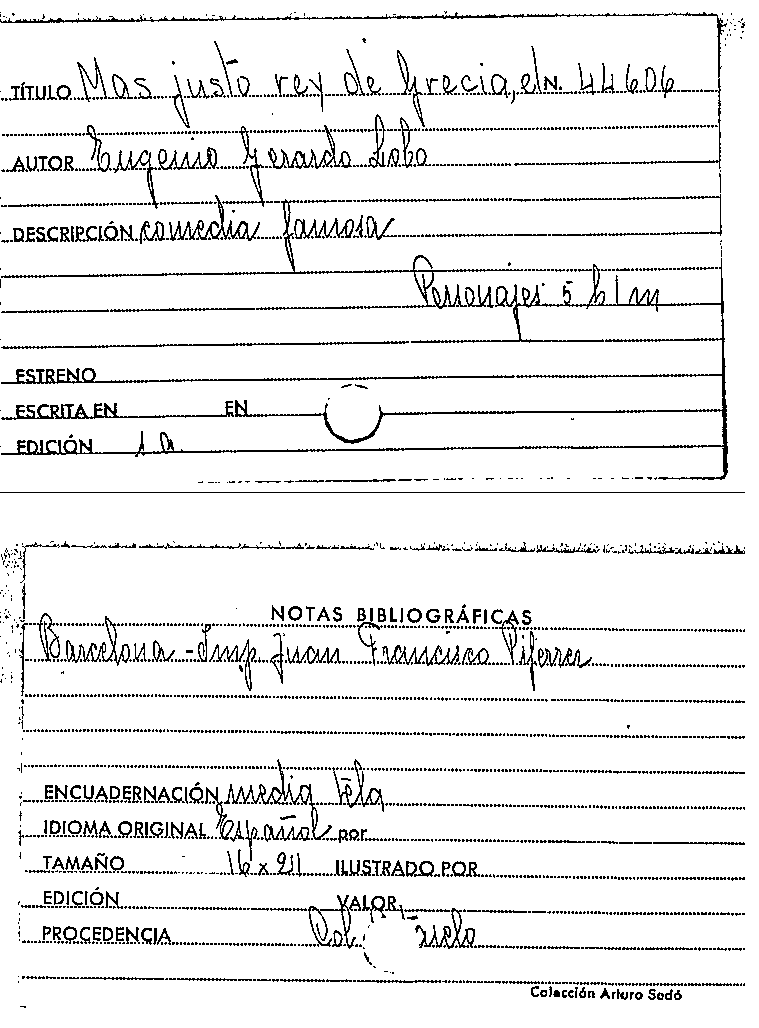 TÍTULO Mas justo rey de Grecia, el N. 44606
AUTOR Eugenio Gerardo Lobo
DESCRIPCIÓN comedia famosa
Personajes 5 h 1 m
ESTRENO
ESCRITA EN EN
EDICIÓN 1a
NOTAS BIBLIOGRÁFICAS
Barcelona - Imp Juan Francisco Piferrer
ENCUADERNACIÓN media tela
IDIOMA ORIGINAL Español por
TAMAÑO 16 x 211 ILUSTRADO POR
EDICIÓN VALOR
PROCEDENCIA Col
Colección Arturo Sedó